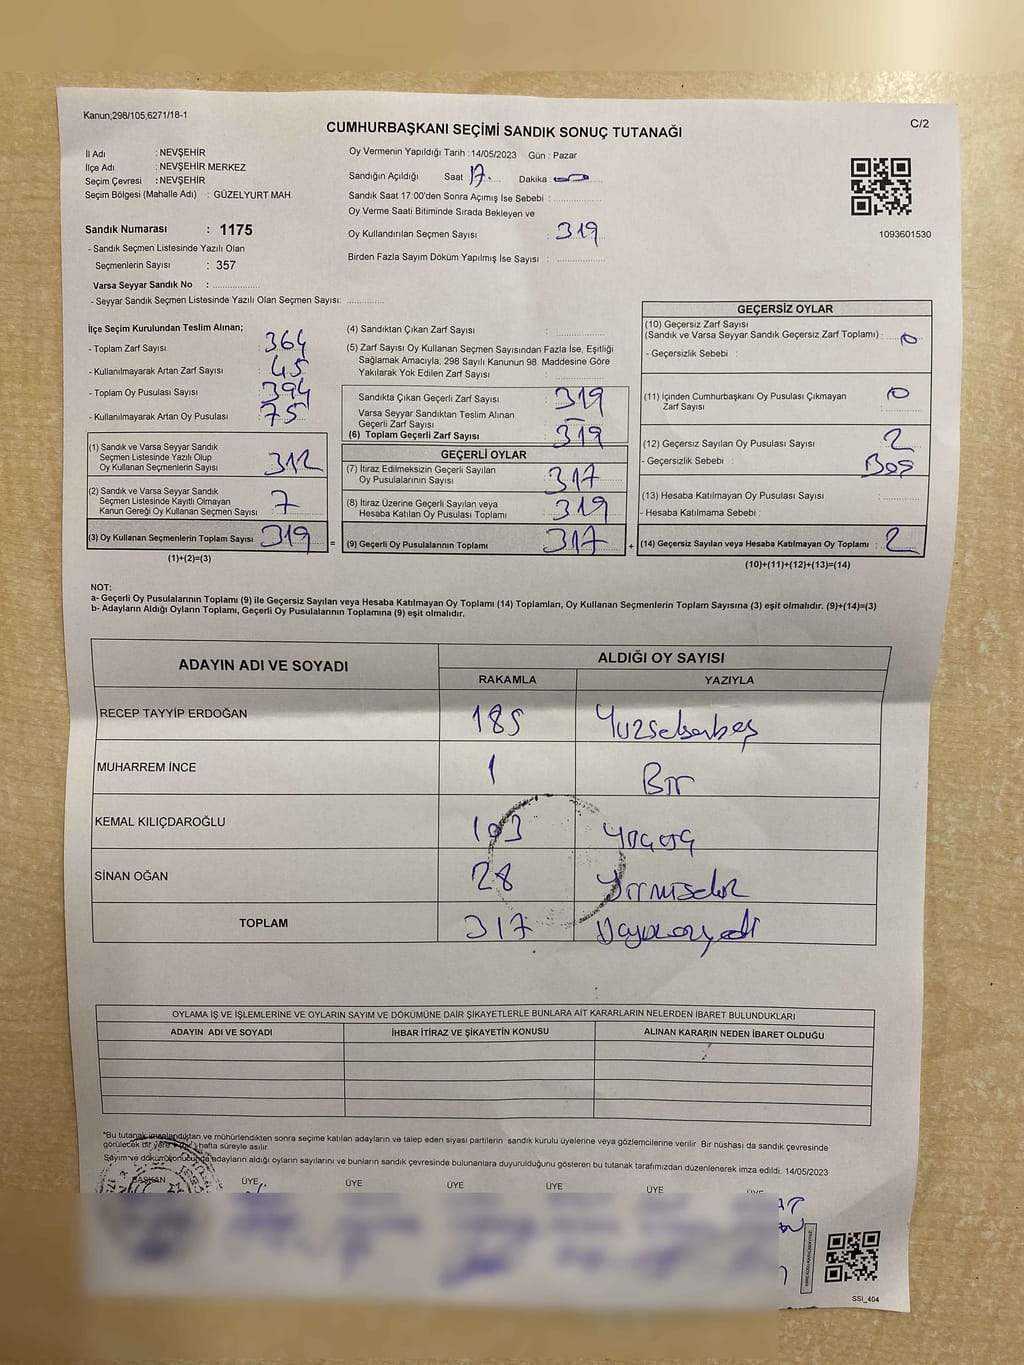 Kanun;298/105;6271/18-1
C/2
CUMHURBAŞKANI SEÇİMİ SANDIK SONUÇ TUTANAĞI
İl Adı : NEVŞEHİR
İlçe Adı : NEVŞEHİR MERKEZ
Seçim Çevresi : NEVŞEHİR
Seçim Bölgesi (Mahalle Adı) : GÜZELYURT MAH.
Sandık Numarası : 1175
- Sandık Seçmen Listesinde Yazılı Olan
Seçmenlerin Sayısı : 357
Varsa Seyyar Sandık No :
- Seyyar Sandık Seçmen Listesinde Yazılı Olan Seçmen Sayısı:
Oy Vermenin Yapıldığı Tarih : 14/05/2023 Gün : Pazar
Sandığın Açıldığı Saat 17 Dakika
Sandık Saat 17:00'den Sonra Açımış İse Sebebi :
Oy Verme Saati Bitiminde Sırada Bekleyen ve
Oy Kullandırılan Seçmen Sayısı : 319
Birden Fazla Sayım Döküm Yapılmış İse Sayısı :
1093601530
İlçe Seçim Kurulundan Teslim Alınan;
- Toplam Zarf Sayısı : 364
- Kullanılmayarak Artan Zarf Sayısı : 45
- Toplam Oy Pusulası Sayısı : 394
- Kullanılmayarak Artan Oy Pusulası : 75
(1) Sandık ve Varsa Seyyar Sandık
Seçmen Listesinde Yazılı Olup
Oy Kullanan Seçmenlerin Sayısı : 312
(2) Sandık ve Varsa Seyyar Sandık
Seçmen Listesinde Kayıtlı Olmayan
Kanun Gereği Oy Kullanan Seçmen Sayısı : 7
(3) Oy Kullanan Seçmenlerin Toplam Sayısı : 319
(1)+(2)=(3)
(4) Sandıktan Çıkan Zarf Sayısı :
(5) Zarf Sayısı Oy Kullanan Seçmen Sayısından Fazla İse, Eşitliği
Sağlamak Amacıyla; 298 Sayılı Kanunun 98. Maddesine Göre
Yakılarak Yok Edilen Zarf Sayısı :
Sandıkta Çıkan Geçerli Zarf Sayısı : 319
Varsa Seyyar Sandıktan Teslim Alınan
Geçerli Zarf Sayısı :
(6) Toplam Geçerli Zarf Sayısı : 319
GEÇERLİ OYLAR
(7) İtiraz Edilmeksizin Geçerli Sayılan
Oy Pusulalarının Sayısı : 317
(8) İtiraz Üzerine Geçerli Sayılan veya
Hesaba Katılan Oy Pusulası Toplamı : 319
= (9) Geçerli Oy Pusulalarının Toplamı : 317 +
GEÇERSİZ OYLAR
(10) Geçersiz Zarf Sayısı
(Sandık ve Varsa Seyyar Sandık Geçersiz Zarf Toplamı) : 0
- Geçersizlik Sebebi :
(11) İçinden Cumhurbaşkanı Oy Pusulası Çıkmayan
Zarf Sayısı : 0
(12) Geçersiz Sayılan Oy Pusulası Sayısı : 2
- Geçersizlik Sebebi : Boş
(13) Hesaba Katılmayan Oy Pusulası Sayısı :
- Hesaba Katılmama Sebebi :
(14) Geçersiz Sayılan veya Hesaba Katılmayan Oy Toplamı : 2
(10)+(11)+(12)+(13)=(14)
NOT:
a- Geçerli Oy Pusulalarının Toplamı (9) ile Geçersiz Sayılan veya Hesaba Katılmayan Oy Toplamı (14) Toplamları, Oy Kullanan Seçmenlerin Toplam Sayısına (3) eşit olmalıdır. (9)+(14)=(3)
b- Adayların Aldığı Oyların Toplamı, Geçerli Oy Pusulalarının Toplamına (9) eşit olmalıdır.
ADAYIN ADI VE SOYADI ALDIĞI OY SAYISI
RAKAMLA YAZIYLA
RECEP TAYYİP ERDOĞAN 185 Yüzseksenbeş
MUHARREM İNCE 1 Bir
KEMAL KILIÇDAROĞLU 103 Yüzüç
SİNAN OĞAN 28 Yirmisekiz
TOPLAM 317 Üçyüzonyedi
OYLAMA İŞ VE İŞLEMLERİNE VE OYLARIN SAYIM VE DÖKÜMÜNE DAİR ŞİKAYETLERLE BUNLARA AİT KARARLARIN NELERDEN İBARET BULUNDUKLARI
ADAYIN ADI VE SOYADI İHBAR İTİRAZ VE ŞİKAYETİN KONUSU ALINAN KARARIN NEDEN İBARET OLDUĞU
*Bu tutanak imzalandıktan ve mühürlendikten sonra seçime katılan adayların ve talep eden siyasi partilerin sandık kurulu üyelerine veya gözlemcilerine verilir. Bir nüshası da sandık çevresinde
görülecek bir yere hafta süreyle asılır.
Sayım ve döküm sonucunda adayların aldığı oyların sayılarını ve bunların sandık çevresinde bulunanlara duyurulduğunu gösteren bu tutanak tarafımızdan düzenlenerek imza edildi. 14/05/2023
BAŞKAN ÜYE ÜYE ÜYE ÜYE ÜYE ÜYE
SSI_404